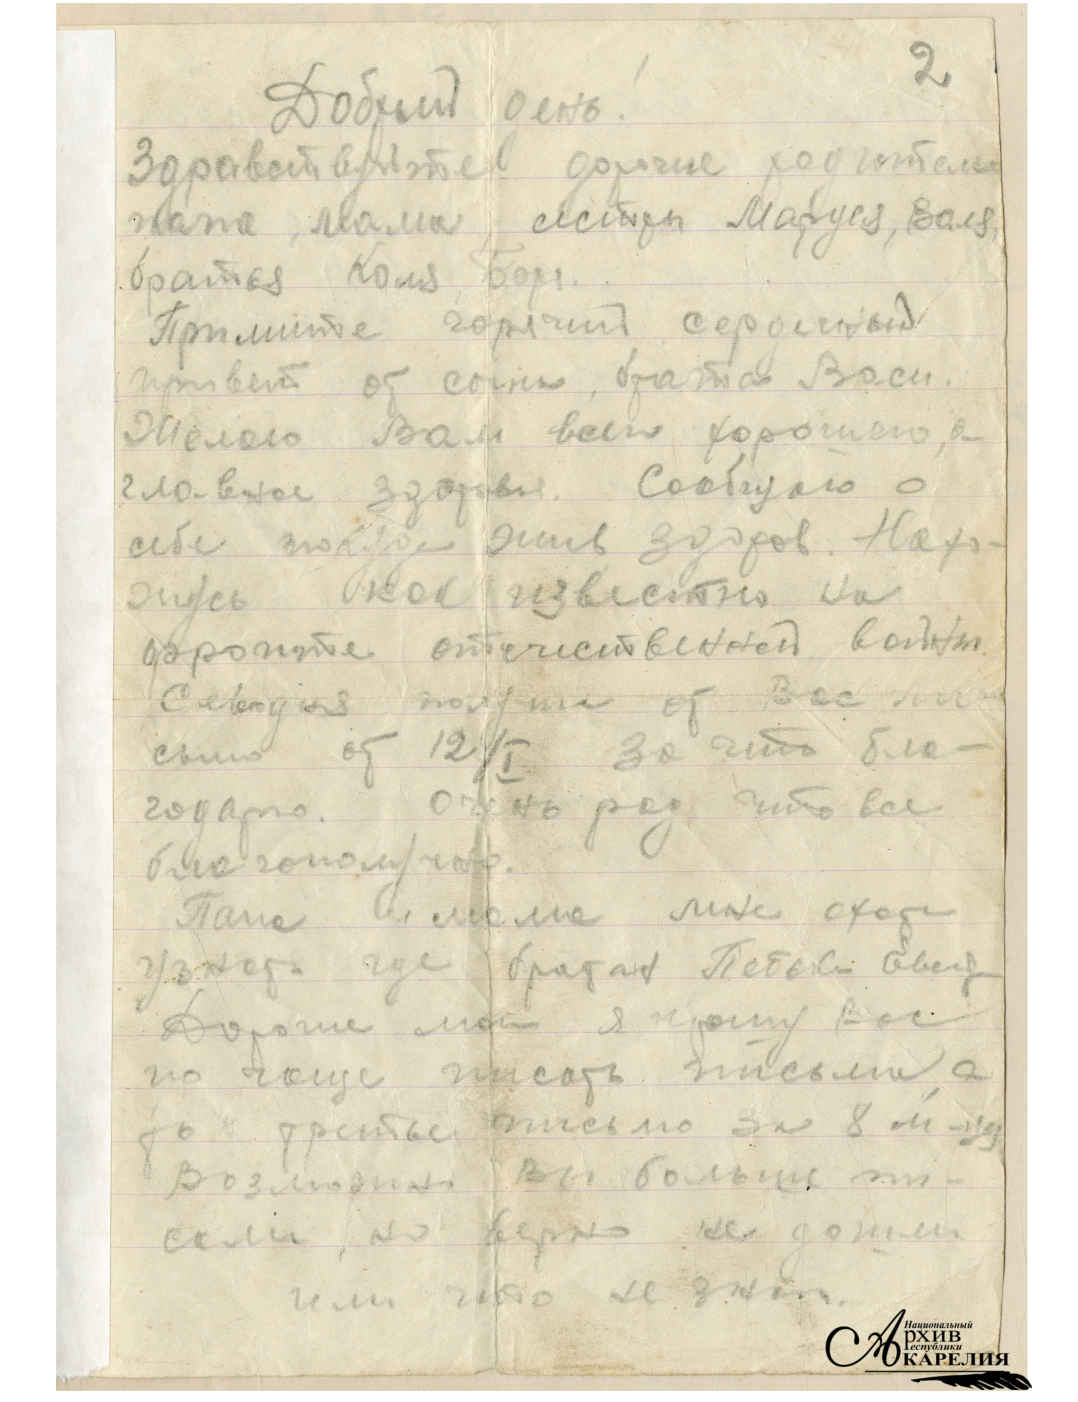 2
Добрый день!
Здравствуйте дорогие родители
папа, мама, сестры Маруся, Валя,
братья Коля, Боря.
Примите горячий сердечный
привет от сына, брата Васи.
Желаю Вам всего хорошего, а
главное здоровья. Сообщаю о
себе покуда жив здоров. Нахо-
жусь как известно на
фронте отечественной войны.
Севодня получил от Вас пи-
сьмо от 12/I за что бла-
годарю. Очень рад что все
благополучно.
Папа и мама мне охота
узнать где братан Петька
Дорогие мои я прошу Вас
по чаще писать письма, а
то третье письмо за 8 м-цев
Возможно Вы больше пи-
сали, но верно не дошли
или что не знаю.
Национальный
Архив
Республики
Карелия